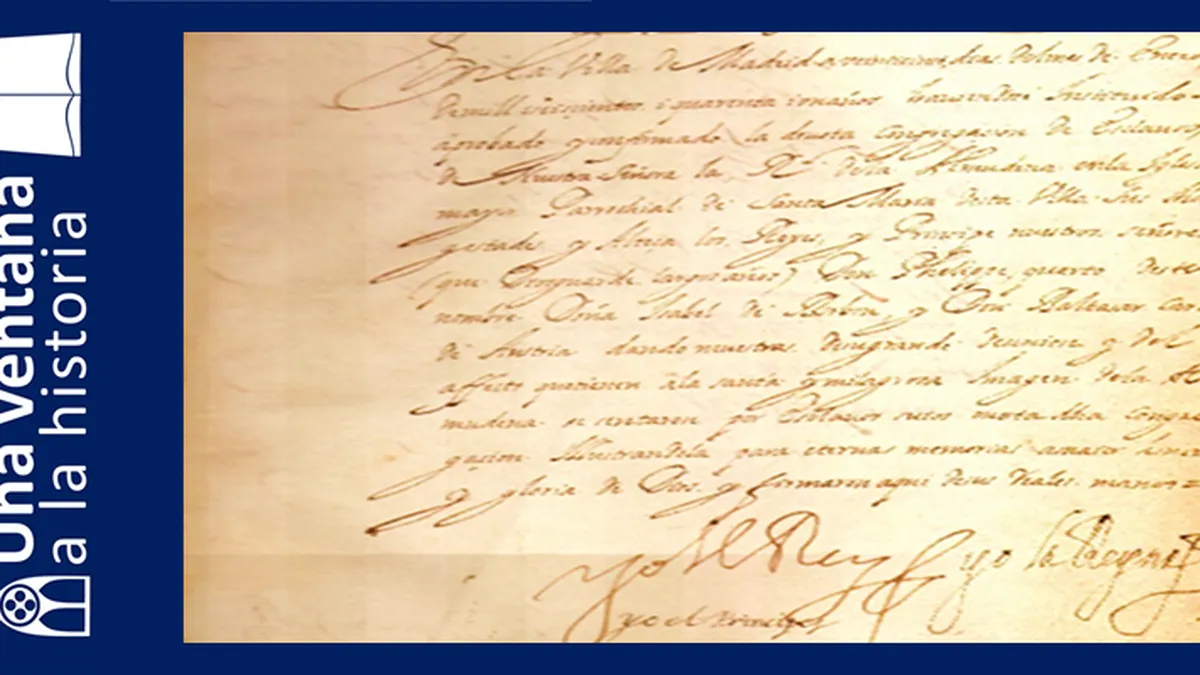 Una ventana
a la historia
En la Villa de Madrid a veinticinco dias del mes de
de mill seiscientos i quarenta i un años
aprobado y confirmado la devota Congregacion de
de Nuestra Señora la Rl de la Almudena en la
mayor Parrochial de Santa Maria desta Villa Sus
gestades y Alteça los Reyes, y Principe nuestros
(que Dios guarde largos años) Don Phelippe quarto deste
nombre Doña Isabel de Borbon, y Don Baltasar Car
de Austria dando muestras de su grande y del
affecto que tienen a la santa y milagrosa Imagen de la Al
mudena se sentaron por Esclavos suyos en esta dha Congre
gaçion Illustrandola para eternas memorias
y gloria de Dios y firmaron aqui de sus Reales manos =
yo el Rey yo la Reyna
yo el Principe